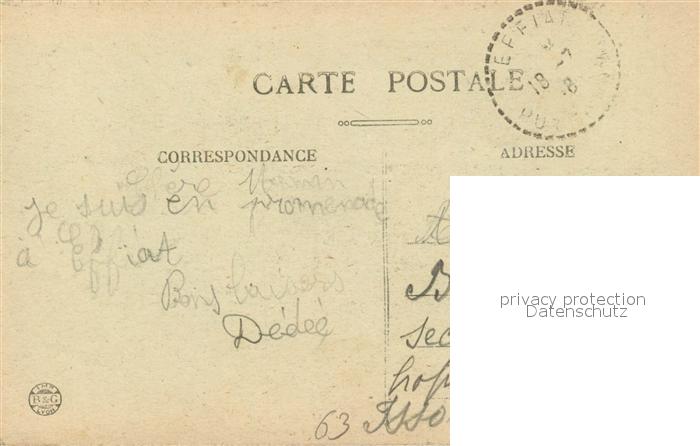 CARTE POSTALE
EFFIAT
18
PUY
CORRESPONDANCE
ADRESSE
Chère Maman
je suis en promenade
à Effiat
Bons baisers
Dédée
B
sec
hop
63 Isso
privacy protection
Datenschutz
B&G
LYON